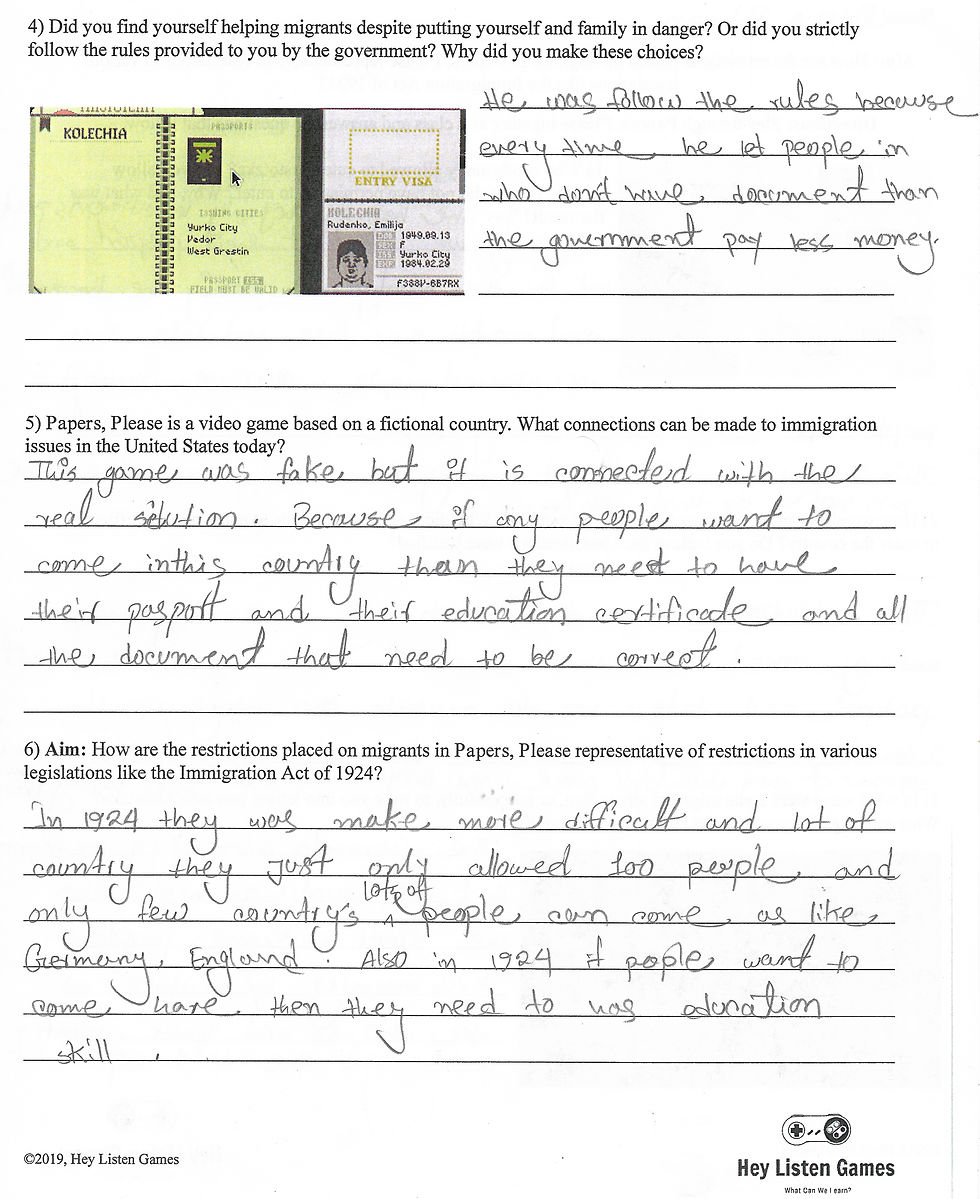 4) Did you find yourself helping migrants despite putting yourself and family in danger? Or did you strictly
follow the rules provided to you by the government? Why did you make these choices?
He was follow the rules because
every time he let people in
who don't have document than
the government pay less money.
KOLECHIA
PASSPORTS
ISSUING CITIES
Yurko City
Vedor
West Grestin
PASSPORT ISS
FIELD MUST BE VALID
ENTRY VISA
KOLECHIA
Rudenko, Emilija
DOB 1949.09.13
SEX F
ISS Yurko City
EXP 1984.02.29
F388V-6B7RX
5) Papers, Please is a video game based on a fictional country. What connections can be made to immigration
issues in the United States today?
This game was fake but it is connected with the
real sitution. Because if any people want to
come inthis country than they need to have
their pasport and their education certificade and all
the document that need to be correct.
6) Aim: How are the restrictions placed on migrants in Papers, Please representative of restrictions in various
legislations like the Immigration Act of 1924?
In 1924 they was make more difficalt and lot of
country they Just only allowed 100 people and
only few country's lots of people can come as like
Germany, England. Also in 1924 if pople want to
come hare then they need to has education
skill.
©2019, Hey Listen Games
Hey Listen Games
What Can We Learn?